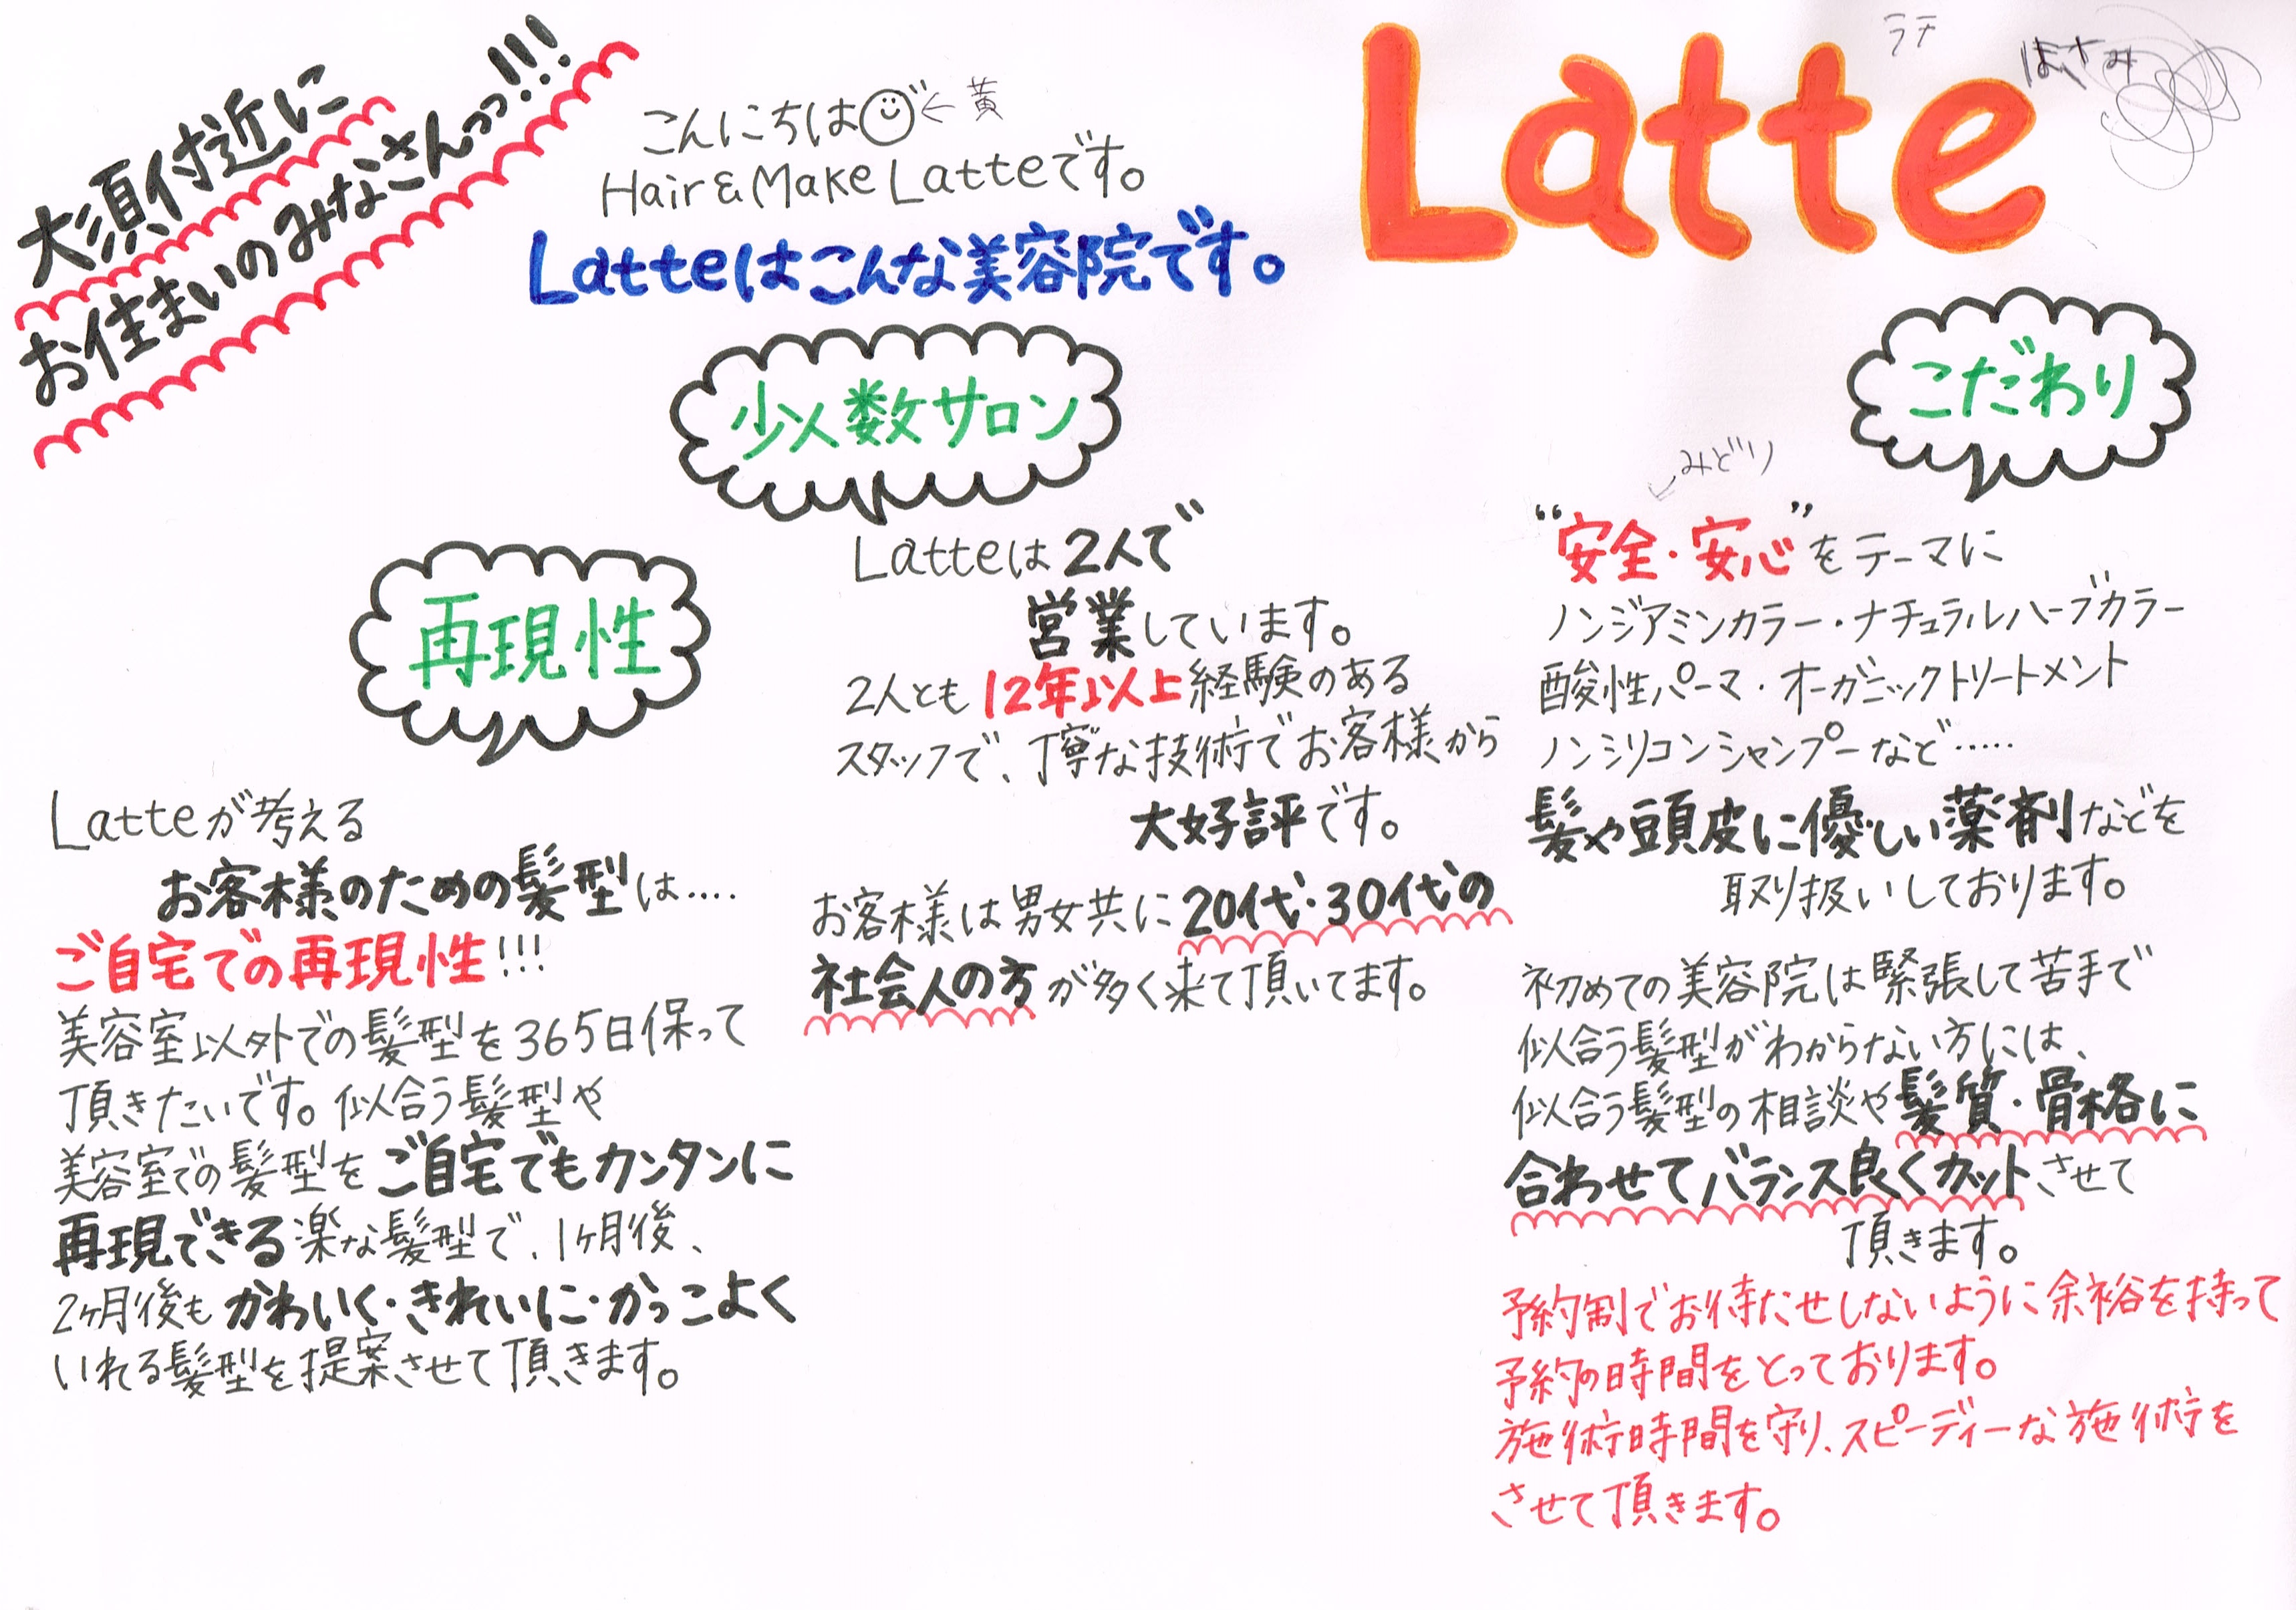 大須付近に
お住まいのみなさんっっ!!!
こんにちは
←黄
Hair&Make Latteです。
Latteはこんな美容院です。
Latte
ラテ
はさみ
再現性
Latteが考える
お客様のための髪型は....
ご自宅での再現性!!!
美容室以外での髪型を365日保って
頂きたいです。似合う髪型や
美容室での髪型をご自宅でもカンタンに
再現できる楽な髪型で、1ヶ月後、
2ヶ月後もかわいく・きれいに・かっこよく
いれる髪型を提案させて頂きます。
少人数サロン
Latteは2人で
営業しています。
2人とも12年以上経験のある
スタッフで、丁寧な技術でお客様から
大好評です。
お客様は男女共に20代・30代の
社会人の方が多く来て頂いてます。
こだわり
←みどり
“安全・安心”をテーマに
ノンジアミンカラー・ナチュラルハーブカラー
酸性パーマ・オーガニックトリートメント
ノンシリコンシャンプーなど.....
髪や頭皮に優しい薬剤などを
取り扱いしております。
初めての美容院は緊張して苦手で
似合う髪型がわからない方には、
似合う髪型の相談や髪質・骨格に
合わせてバランス良くカットさせて
頂きます。
予約制でお待たせしないように余裕を持って
予約の時間をとっております。
施術時間を守り、スピーディーな施術を
させて頂きます。